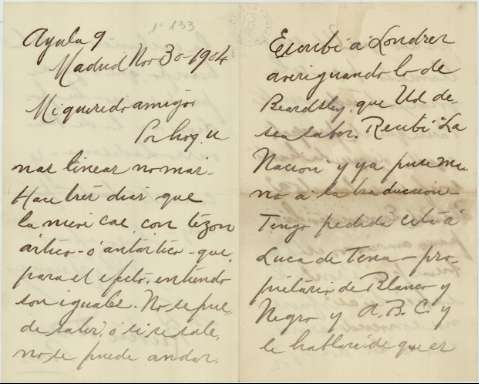 Ayala 9.
Madrid Nov 30-1904
Mi querido amigo:
Por hoy, u
nas líneas no más.
Hace tres días que
la nieve cae, con tezon
ártico - ó antártico - que,
para el efecto, entiendo
son iguales. No se pue
de salir, ó si se sale,
no se puede andar.
Escribí á Londres
averiguando lo de
Beardsley que Ud de
sea saber. Recibí La
Nación y ya puse ma
no á la traducción.
Tengo pedida cita á
Luca de Tena - pro
pietario de Blanco y
Negro y A.B.C. y
le hablaré de que es